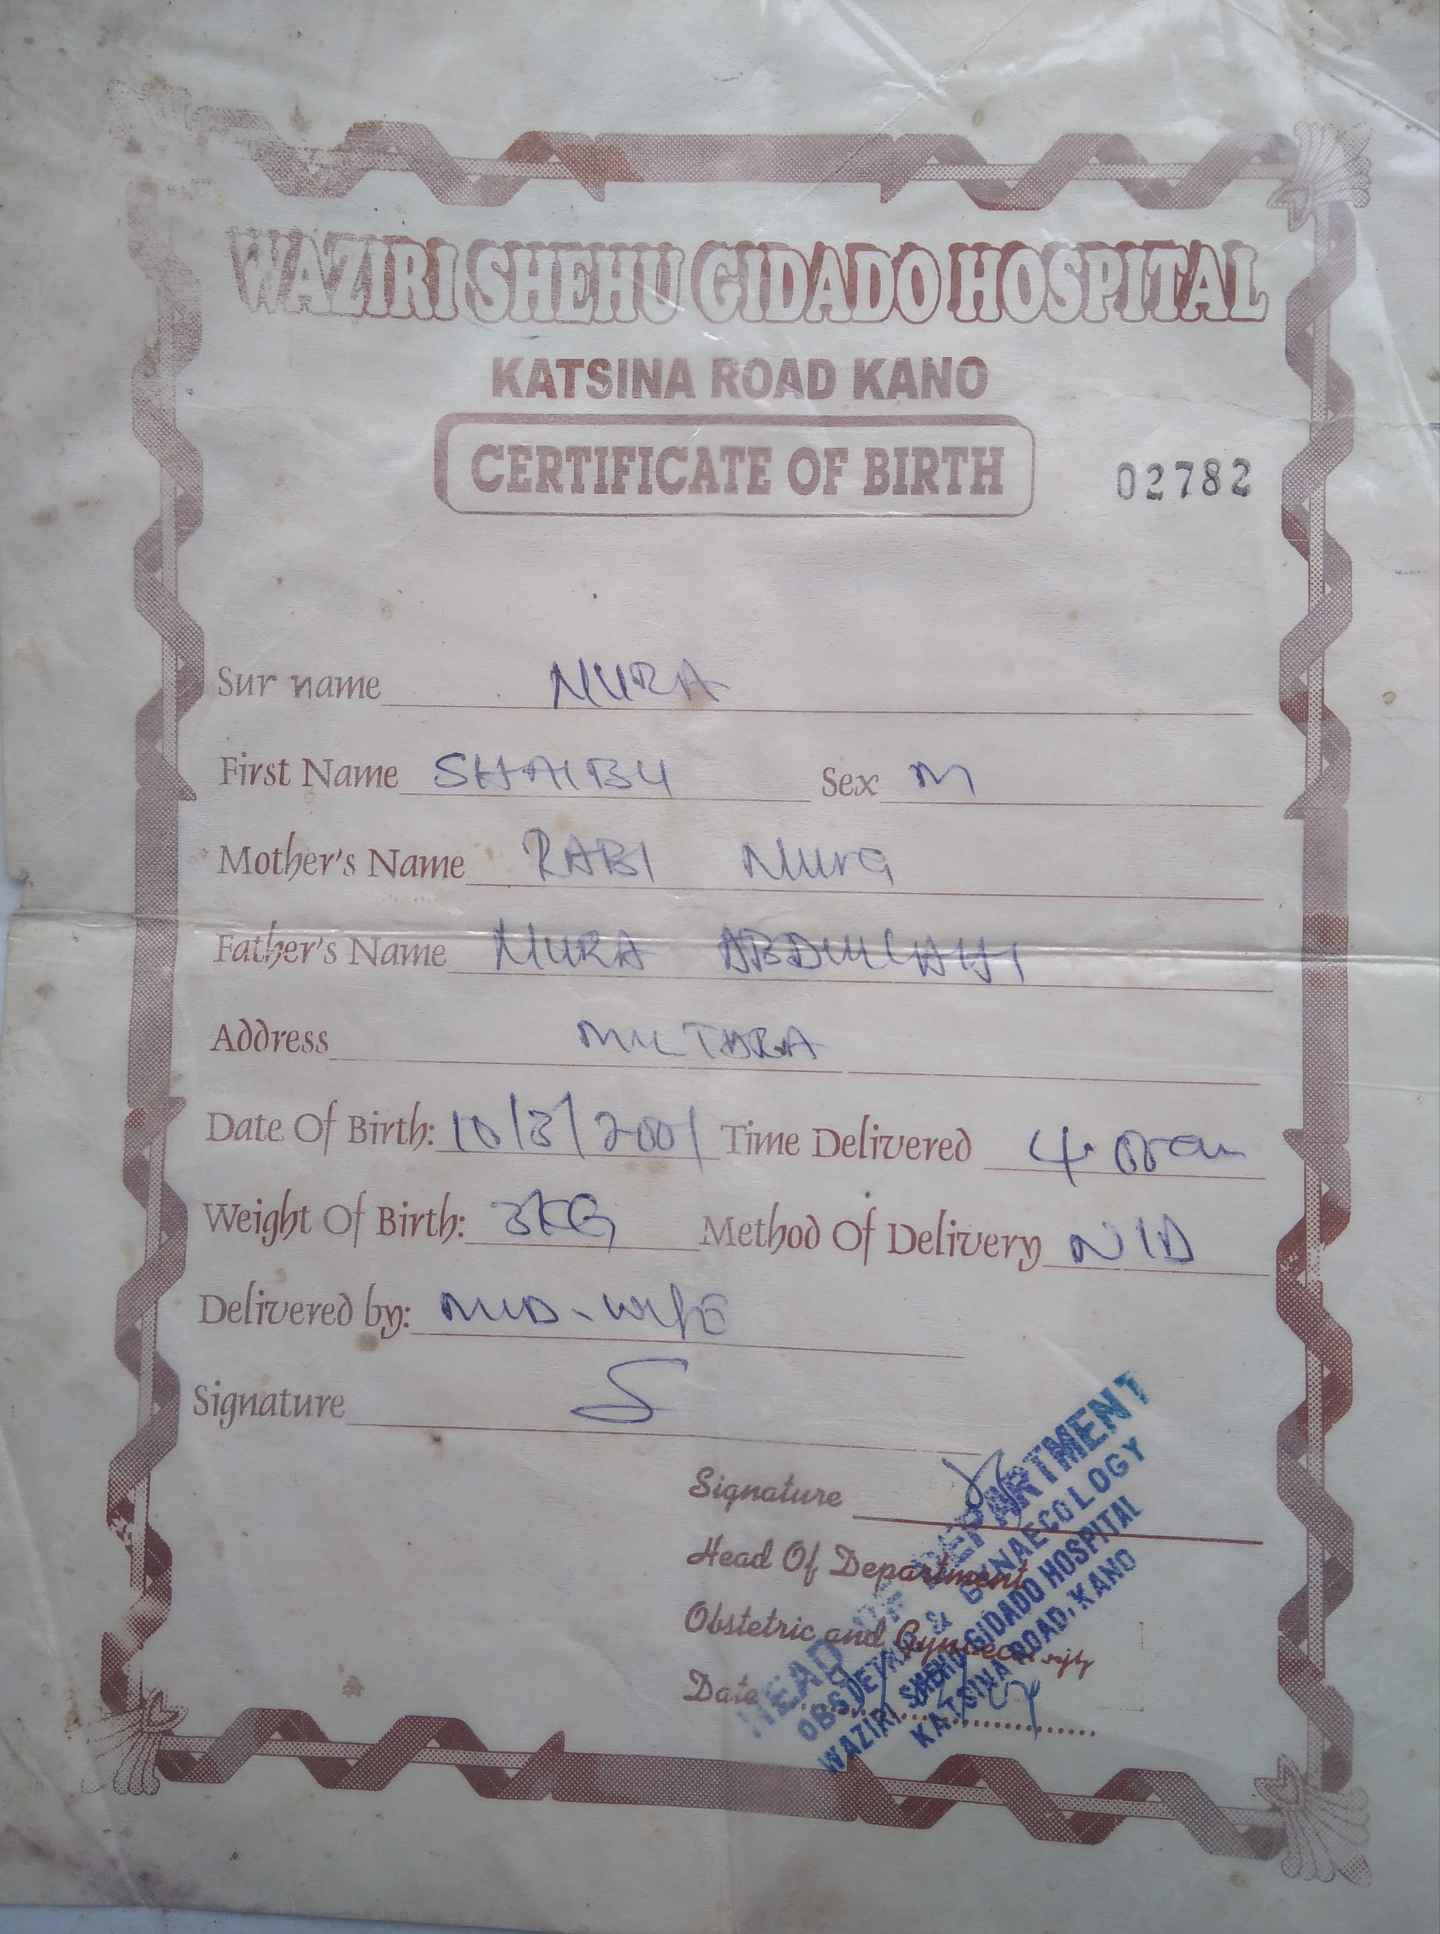 WAZIRI SHEHU GIDADO HOSPITAL
KATSINA ROAD KANO
CERTIFICATE OF BIRTH
02782
Sur name NURA
First Name SHAIBU Sex M
Mother's Name RABI Nura
Father's Name NURA ABDULLAHI
Address
Date Of Birth: 10/3/2001 Time Delivered 4.
Weight Of Birth: 3KG Method Of Delivery
Delivered by: MID-WIFE
Signature
Signature
Head Of Department
Obstetric and Gynaecology
Date
HEAD OF DEPARTMENT
OBSTETRIC & GYNAECOLOGY
WAZIRI SHEHU GIDADO HOSPITAL
KATSINA ROAD, KANO